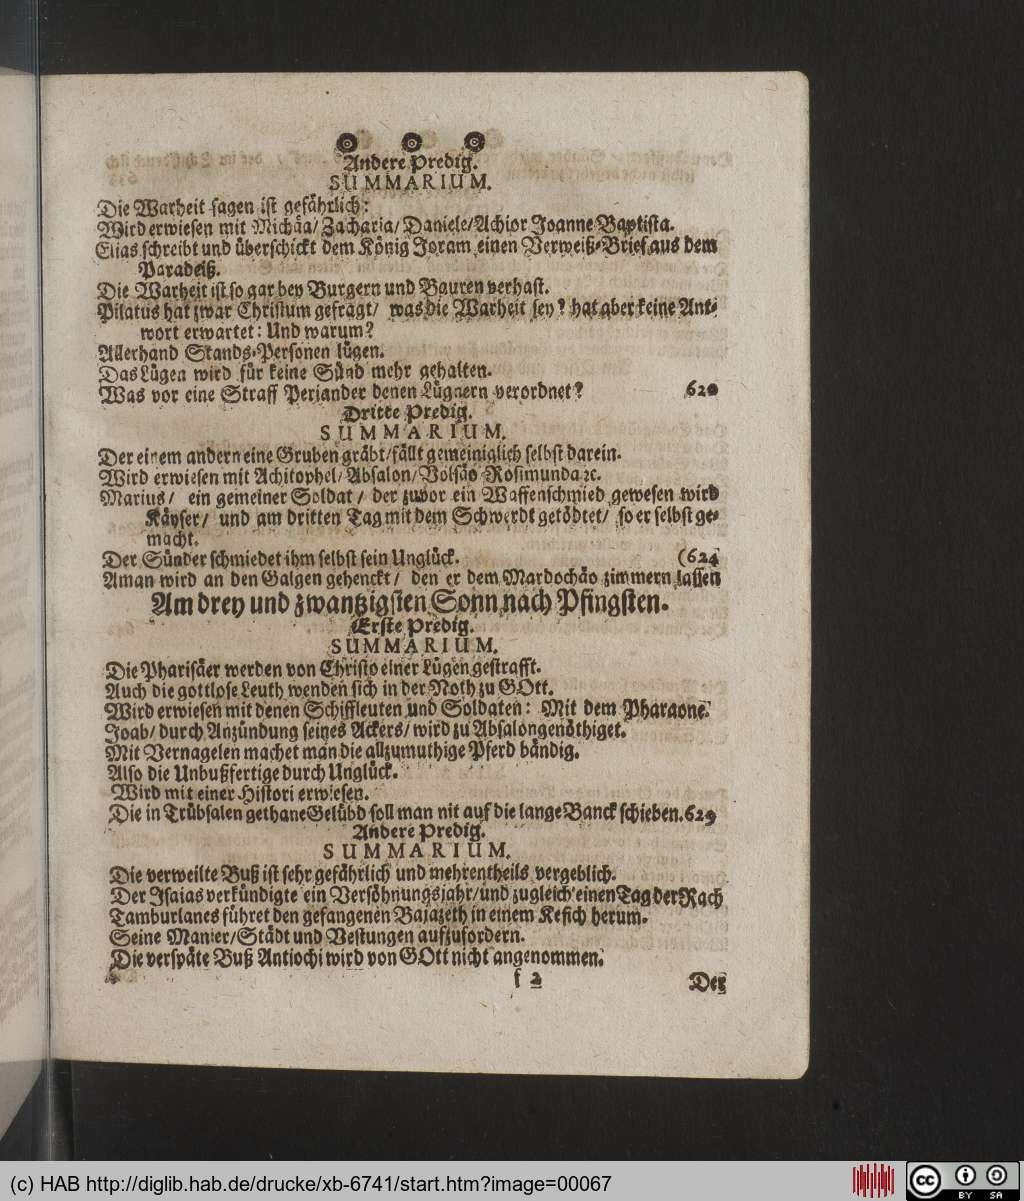 Andere Predig.
SUMMARIUM.
Die Warheit sagen ist gefährlich:
Wird erwiesen mit Michäa/ Zacharia/ Daniele/ Achior Joanne Baptista.
Elias schreibt und überschickt dem König Joram einen Verweiß-Brief aus dem
Paradeiß.
Die Warheit ist so gar bey Burgern und Bauren verhast.
Pilatus hat zwar Christum gefragt/ was die Warheit sey? hat aber keine Ant-
wort erwartet: Und warum?
Allerhand Stands-Personen lügen.
Das Lügen wird für keine Sünd mehr gehalten.
Was vor eine Straff Periander denen Lügnern verordnet? 620
Dritte Predig.
SUMMARIUM.
Der einem andern eine Gruben gräbt/ fällt gemeiniglich selbst darein.
Wird erwiesen mit Achitophel/ Absalon/ Volsäo Rosimunda ꝛc.
Marius/ ein gemeiner Soldat/ der zuvor ein Waffenschmied gewesen wird
Käyser/ und am dritten Tag mit dem Schwerdt getödtet/ so er selbst ge-
macht.
Der Sünder schmiedet ihm selbst sein Unglück. (624
Aman wird an den Galgen gehenckt/ den er dem Mardochäo zimmern lassen
Am drey und zwantzigsten Sonn nach Pfingsten.
Erste Predig.
SUMMARIUM.
Die Pharisäer werden von Christo einer Lügen gestrafft.
Auch die gottlose Leuth wenden sich in der Noth zu GOtt.
Wird erwiesen mit denen Schiffleuten und Soldaten: Mit dem Pharaone.
Joab/ durch Anzündung seines Ackers/ wird zu Absalon genöthiget.
Mit Vernagelen machet man die allzumuthige Pferd bändig.
Also die Unbußfertige durch Unglück.
Wird mit einer Histori erwiesen.
Die in Trübsalen gethane Gelübd soll man nit auf die lange Banck schieben. 629
Andere Predig.
SUMMARIUM.
Die verweilte Buß ist sehr gefährlich und mehrentheils vergeblich.
Der Isaias verkündigte ein Versöhnungsjahr/ und zugleich einen Tag der Rach
Tamburlanes führet den gefangenen Bajazeth in einem Kefich herum.
Seine Manier/ Städt und Vestungen aufzufordern.
Die verspäte Buß Antiochi wird von GOtt nicht angenommen.
f 2 Der
(c) HAB http://diglib.hab.de/drucke/xb-6741/start.htm?image=00067
cc BY SA